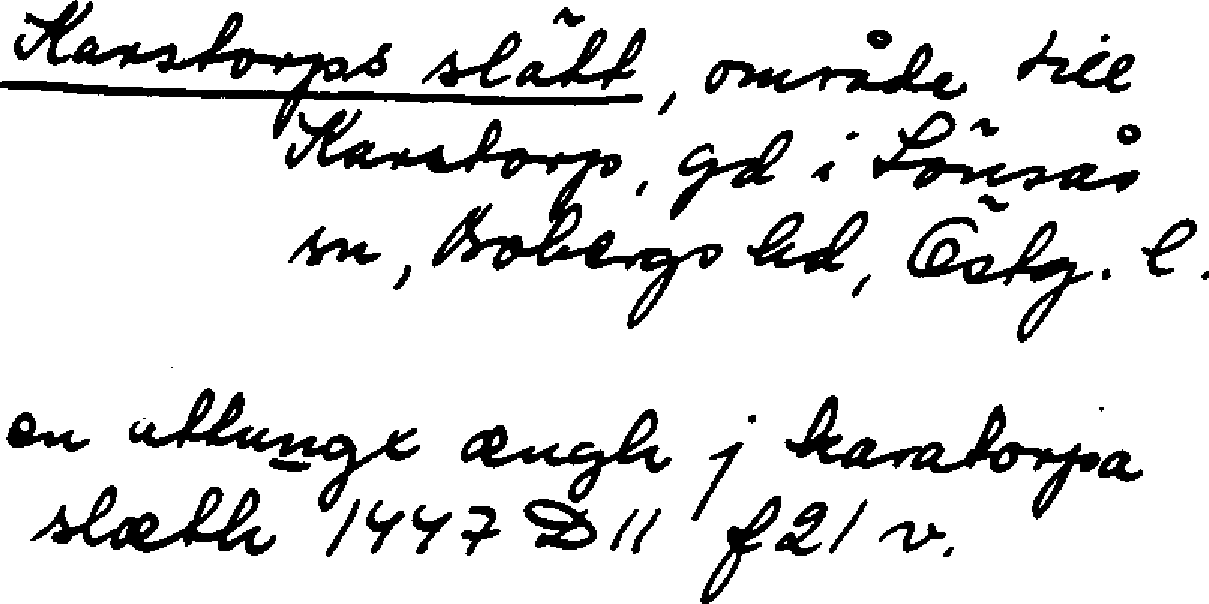 Karstorps slätt, område till
Karstorp, gd i Lönsås
sn, Bobergs hd, Östg. l.
en attungx ængh j karatorpa
slæth 1447 D 11 f 21 v.